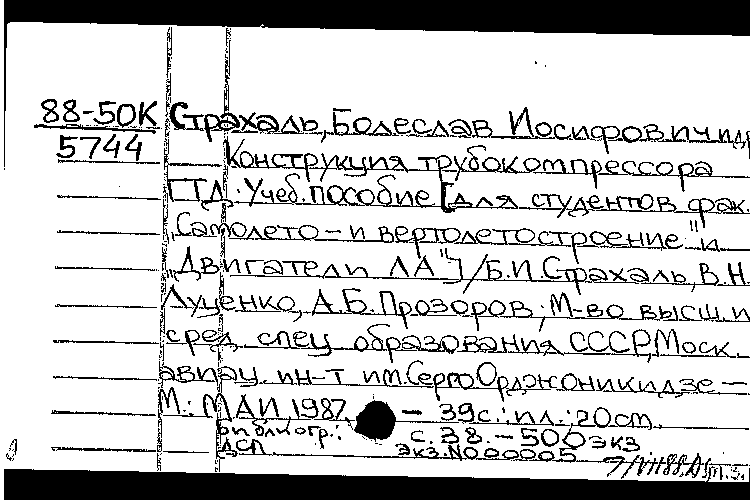 88-50К Страхаль, Болеслав Иосифович и др
5744 Конструкция трубокомпрессора
ГТД: Учеб. пособие [для студентов фак.
„Самолето- и вертолетостроение" и
„Двигатели ЛА"] / Б.И. Страхаль, В.Н.
Луценко, А.Б. Прозоров; М-во высш. и
сред. спец. образования СССР, Моск.
авиац. ин-т им. Серго Орджоникидзе –
М.: МАИ, 1987. – 39 с.: ил.; 20 см.
Библиогр.: с. 38. – 500 экз
ДСП. Экз. № 00005